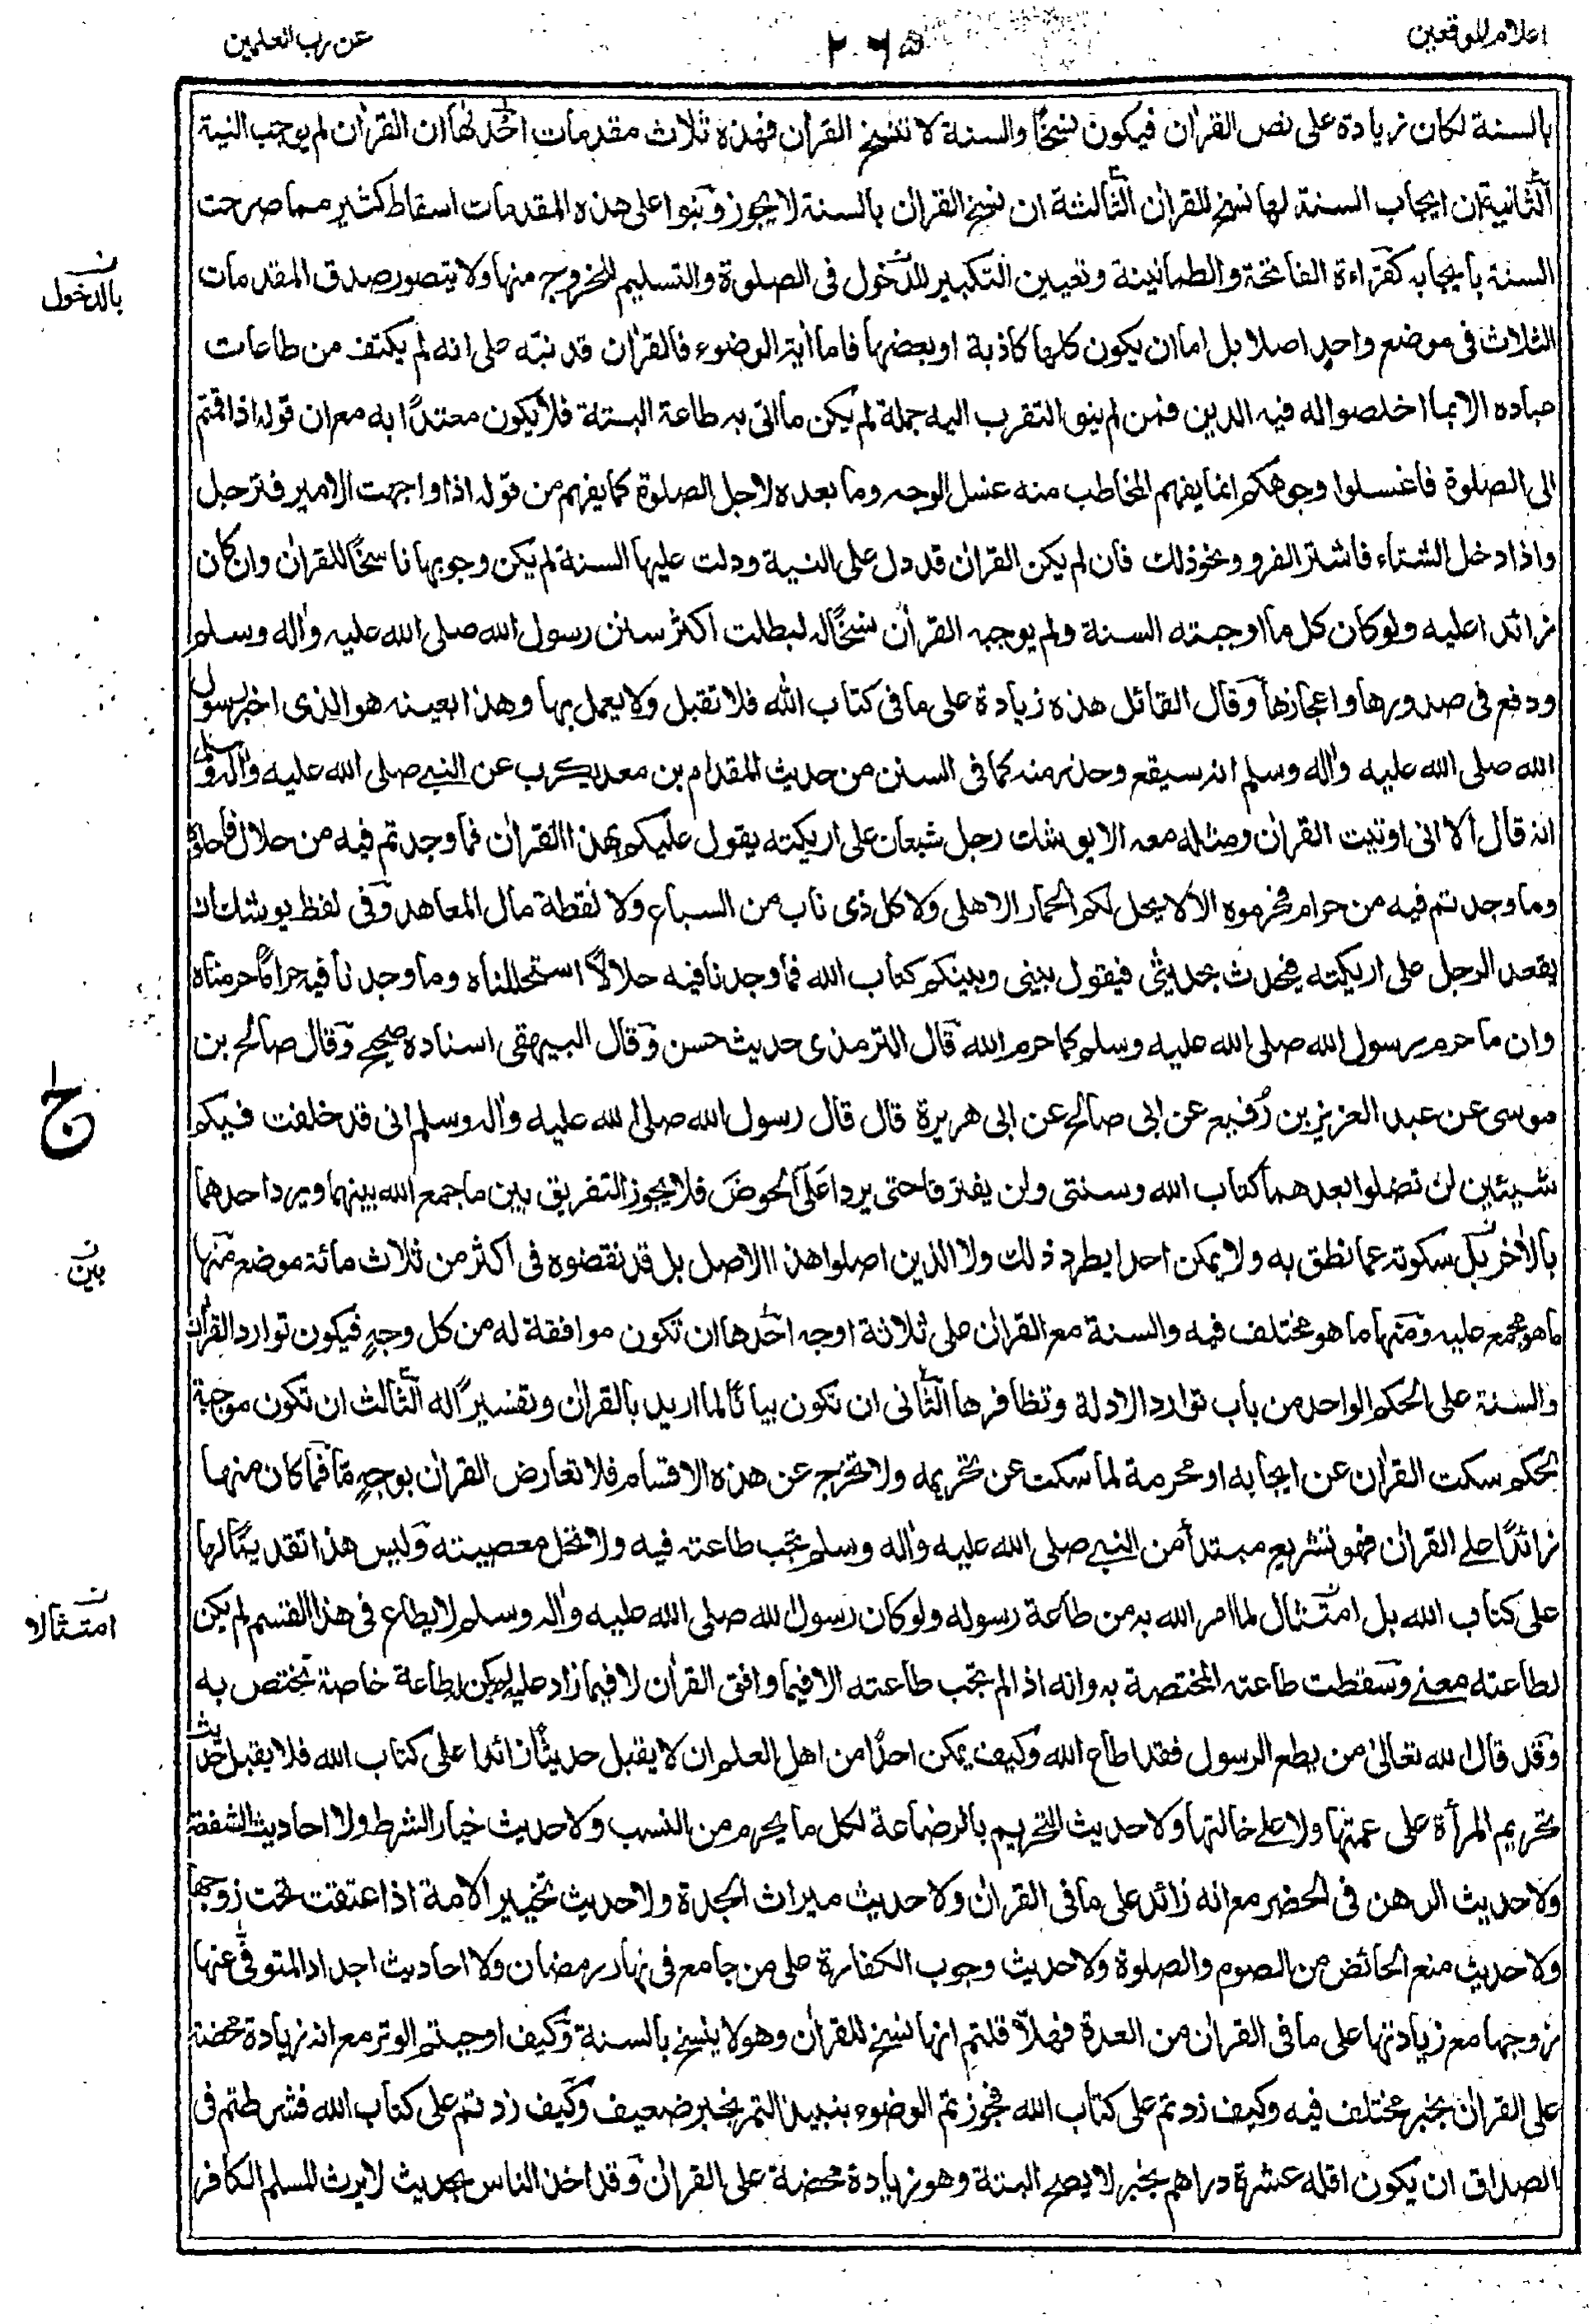 اعلام الموقعين
٢٠٦٥
عن رب العلمين
بالسنة لكان زيادة على نص القرآن فيكون نسخًا والسنة لا تنسخ القرآن فهذه ثلاث مقدمات احدٰها ان القرآن لم يوجب النية
الثانية ان ايجاب السنة لها نسخ للقرآن الثالثة ان نسخ القرآن بالسنة لا يجوز وبنوا على هذه المقدمات اسقاط كثير مما صرحت
السنة بايجابه كقراءة الفاتحة والطمانينة وتعيين التكبير للدخول فى الصلوة والتسليم للخروج منها ولا يتصور صدق المقدمات
بالدخول
الثلاث فى موضع واحدٍ اصلا بل اما ان يكون كلها كاذبة او بعضها فاما أية الوضوء فالقرآن قد نبّه على انه لم يكتف من طاعات
عباده الا بما اخلصوا له فيه الدين فمن لم ينو التقرب اليه جملة لم يكن ما اتى به طاعة البتة فلا يكون معتدًا به مع ان قوله اذا قمتم
الى الصلوة فاغسلوا وجوهكم انما يفهم المخاطب منه غسل الوجه وما بعده لاجل الصلوة كما يفهم من قوله اذا واجهت الامير فترجل
واذا دخل الشتاء فاشتر الفرو ونحو ذلك فان لم يكن القرآن قد دل على النية ودلت عليها السنة لم يكن وجوبها ناسخًا للقرآن وان كان
زائدا عليه ولو كان كل ما اوجبته السنة ولم يوجبه القرآن نسخًا له لبطلت اكثر سنن رسول الله صلى الله عليه واٰله وسلم
ودفع فى صدورها واعجازها وقال القائل هذه زيادة على ما فى كتاب الله فلا تقبل ولا يعمل بها وهذا بعينه هو الذى اخبر رسول
الله صلى الله عليه واٰله وسلم انه سيقع وحذر منه كما فى السنن من حديث المقدام بن معديكرب عن النبى صلى الله عليه واٰله وسلم
انه قال الا انى اوتيت القرآن ومثله معه الا يوشك رجل شبعان على اريكته يقول عليكم بهذا القرآن فما وجدتم فيه من حلال فاحلوه
وما وجدتم فيه من حرام فحرموه الا لا يحل لكم الحمار الاهلى ولا كل ذى ناب من السباع ولا لقطة مال المعاهد وفى لفظ يوشك ان
يقعد الرجل على اريكته فيحدث بحديثى فيقول بينى وبينكم كتاب الله فما وجدنا فيه حلالًا استحللناه وما وجدنا فيه حرامًا حرمناه
وان ما حرم رسول الله صلى الله عليه وسلم كما حرم الله قال الترمذى حديث حسن وقال البيهقى اسناده صحيح وقال صالح بن
موسى عن عبد العزيز بن رُفيع عن ابى صالح عن ابى هريرة قال قال رسول الله صلى الله عليه واٰله وسلم انى قد خلفت فيكم
ج
شيئين لن تضلوا بعدهما كتاب الله وسنتى ولن يفترقا حتى يردا علىّ الحوض فلا يجوز التفريق بين ما جمع الله بينهما ويرد احدهما
بالاٰخر بل سكوته عما نطق به ولا يمكن احدا يطرد ذلك ولا الذين اصلوا هذا الاصل بل قد نقضوه فى اكثر من ثلاث مائة موضع منها
بين
ما هو مجمع عليه ومنها ما هو مختلف فيه والسنة مع القرآن على ثلاثة اوجه احدها ان تكون موافقة له من كل وجهٍ فيكون توارد القرآن
والسنة على الحكم الواحد من باب توارد الادلة وتظافرها الثانى ان تكون بيانًا لما اريد بالقرآن وتفسيرًا له الثالث ان تكون موجبة
لحكم سكت القرآن عن ايجابه او محرمة لما سكت عن تحريمه ولا تخرج عن هذه الاقسام فلا تعارض القرآن بوجهٍ مّا فما كان منها
زائدًا على القرآن فهو تشريع مبتدأ من النبى صلى الله عليه واٰله وسلم تجب طاعته فيه ولا تحل معصيته وليس هذا تقديمًا لها
على كتاب الله بل امتثال لما امر الله به من طاعة رسوله ولو كان رسول الله صلى الله عليه واٰله وسلم لا يطاع فى هذا القسم لم يكن
امتثالا
لطاعته معنى وسقطت طاعته المختصة به وانه اذا لم تجب طاعته الا فيما وافق القرآن لا فيما زاد عليه لم يكن له طاعة خاصة تختص به
وقد قال الله تعالىٰ من يطع الرسول فقد اطاع الله وكيف يمكن احدًا من اهل العلم ان لا يقبل حديثًا زائدا على كتاب الله فلا يقبل حديث
تحريم المرأة على عمتها ولا على خالتها ولا حديث التحريم بالرضاعة لكل ما يحرم من النسب ولا حديث خيار الشرط ولا احاديث الشفعة
ولا حديث الرهن فى الحضر مع انه زائد على ما فى القرآن ولا حديث ميراث الجدة ولا حديث تخيير الامة اذا عتقت تحت زوجها
ولا حديث منع الحائض من الصوم والصلوة ولا حديث وجوب الكفارة على من جامع فى نهار رمضان ولا احاديث احداد المتوفى عنها
زوجها مع زيادتها على ما فى القرآن من العدة فهلّا قلتم انها نسخ للقرآن وهو لا ينسخ بالسنة وكيف اوجبتم الوتر مع انه زيادة محضة
على القرآن بخبر مختلف فيه وكيف زدتم على كتاب الله فجوزتم الوضوء بنبيذ التمر بخبر ضعيف وكيف زدتم على كتاب الله فشرطتم فى
الصداق ان يكون اقله عشرة دراهم بخبر لا يصح البتة وهو زيادة محضة على القرآن وقد اخذ الناس بحديث لا يرث المسلم الكافر